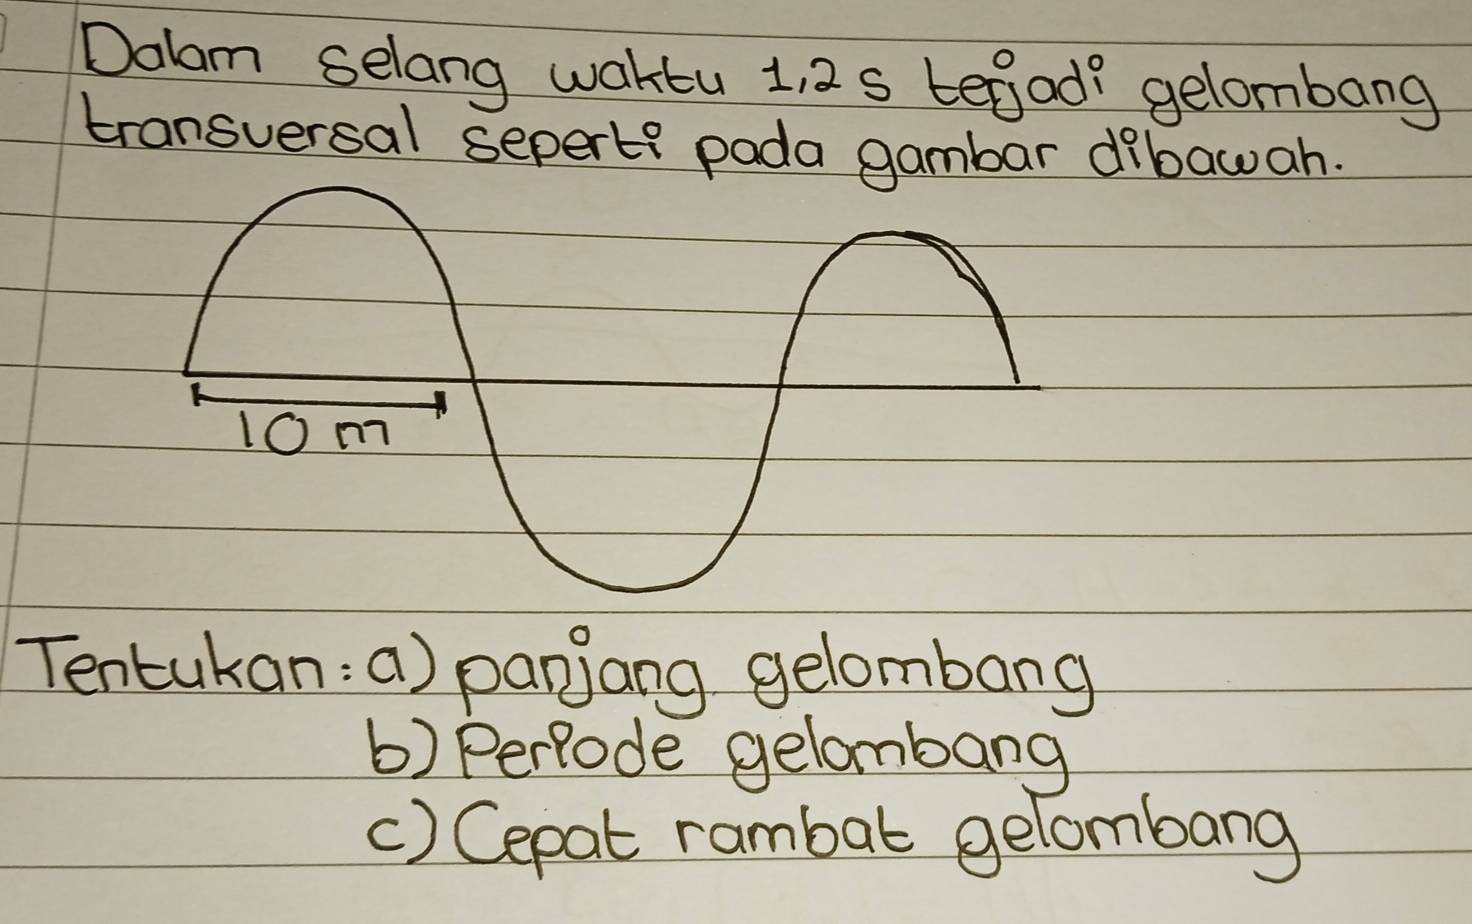 Dalam selang waktu 1,2 s terjadi gelombang
transversal seperti pada gambar dibawah.
10 m
Tentukan: a) panjang gelombang
b) Periode gelombang
c) Cepat rambat gelombang